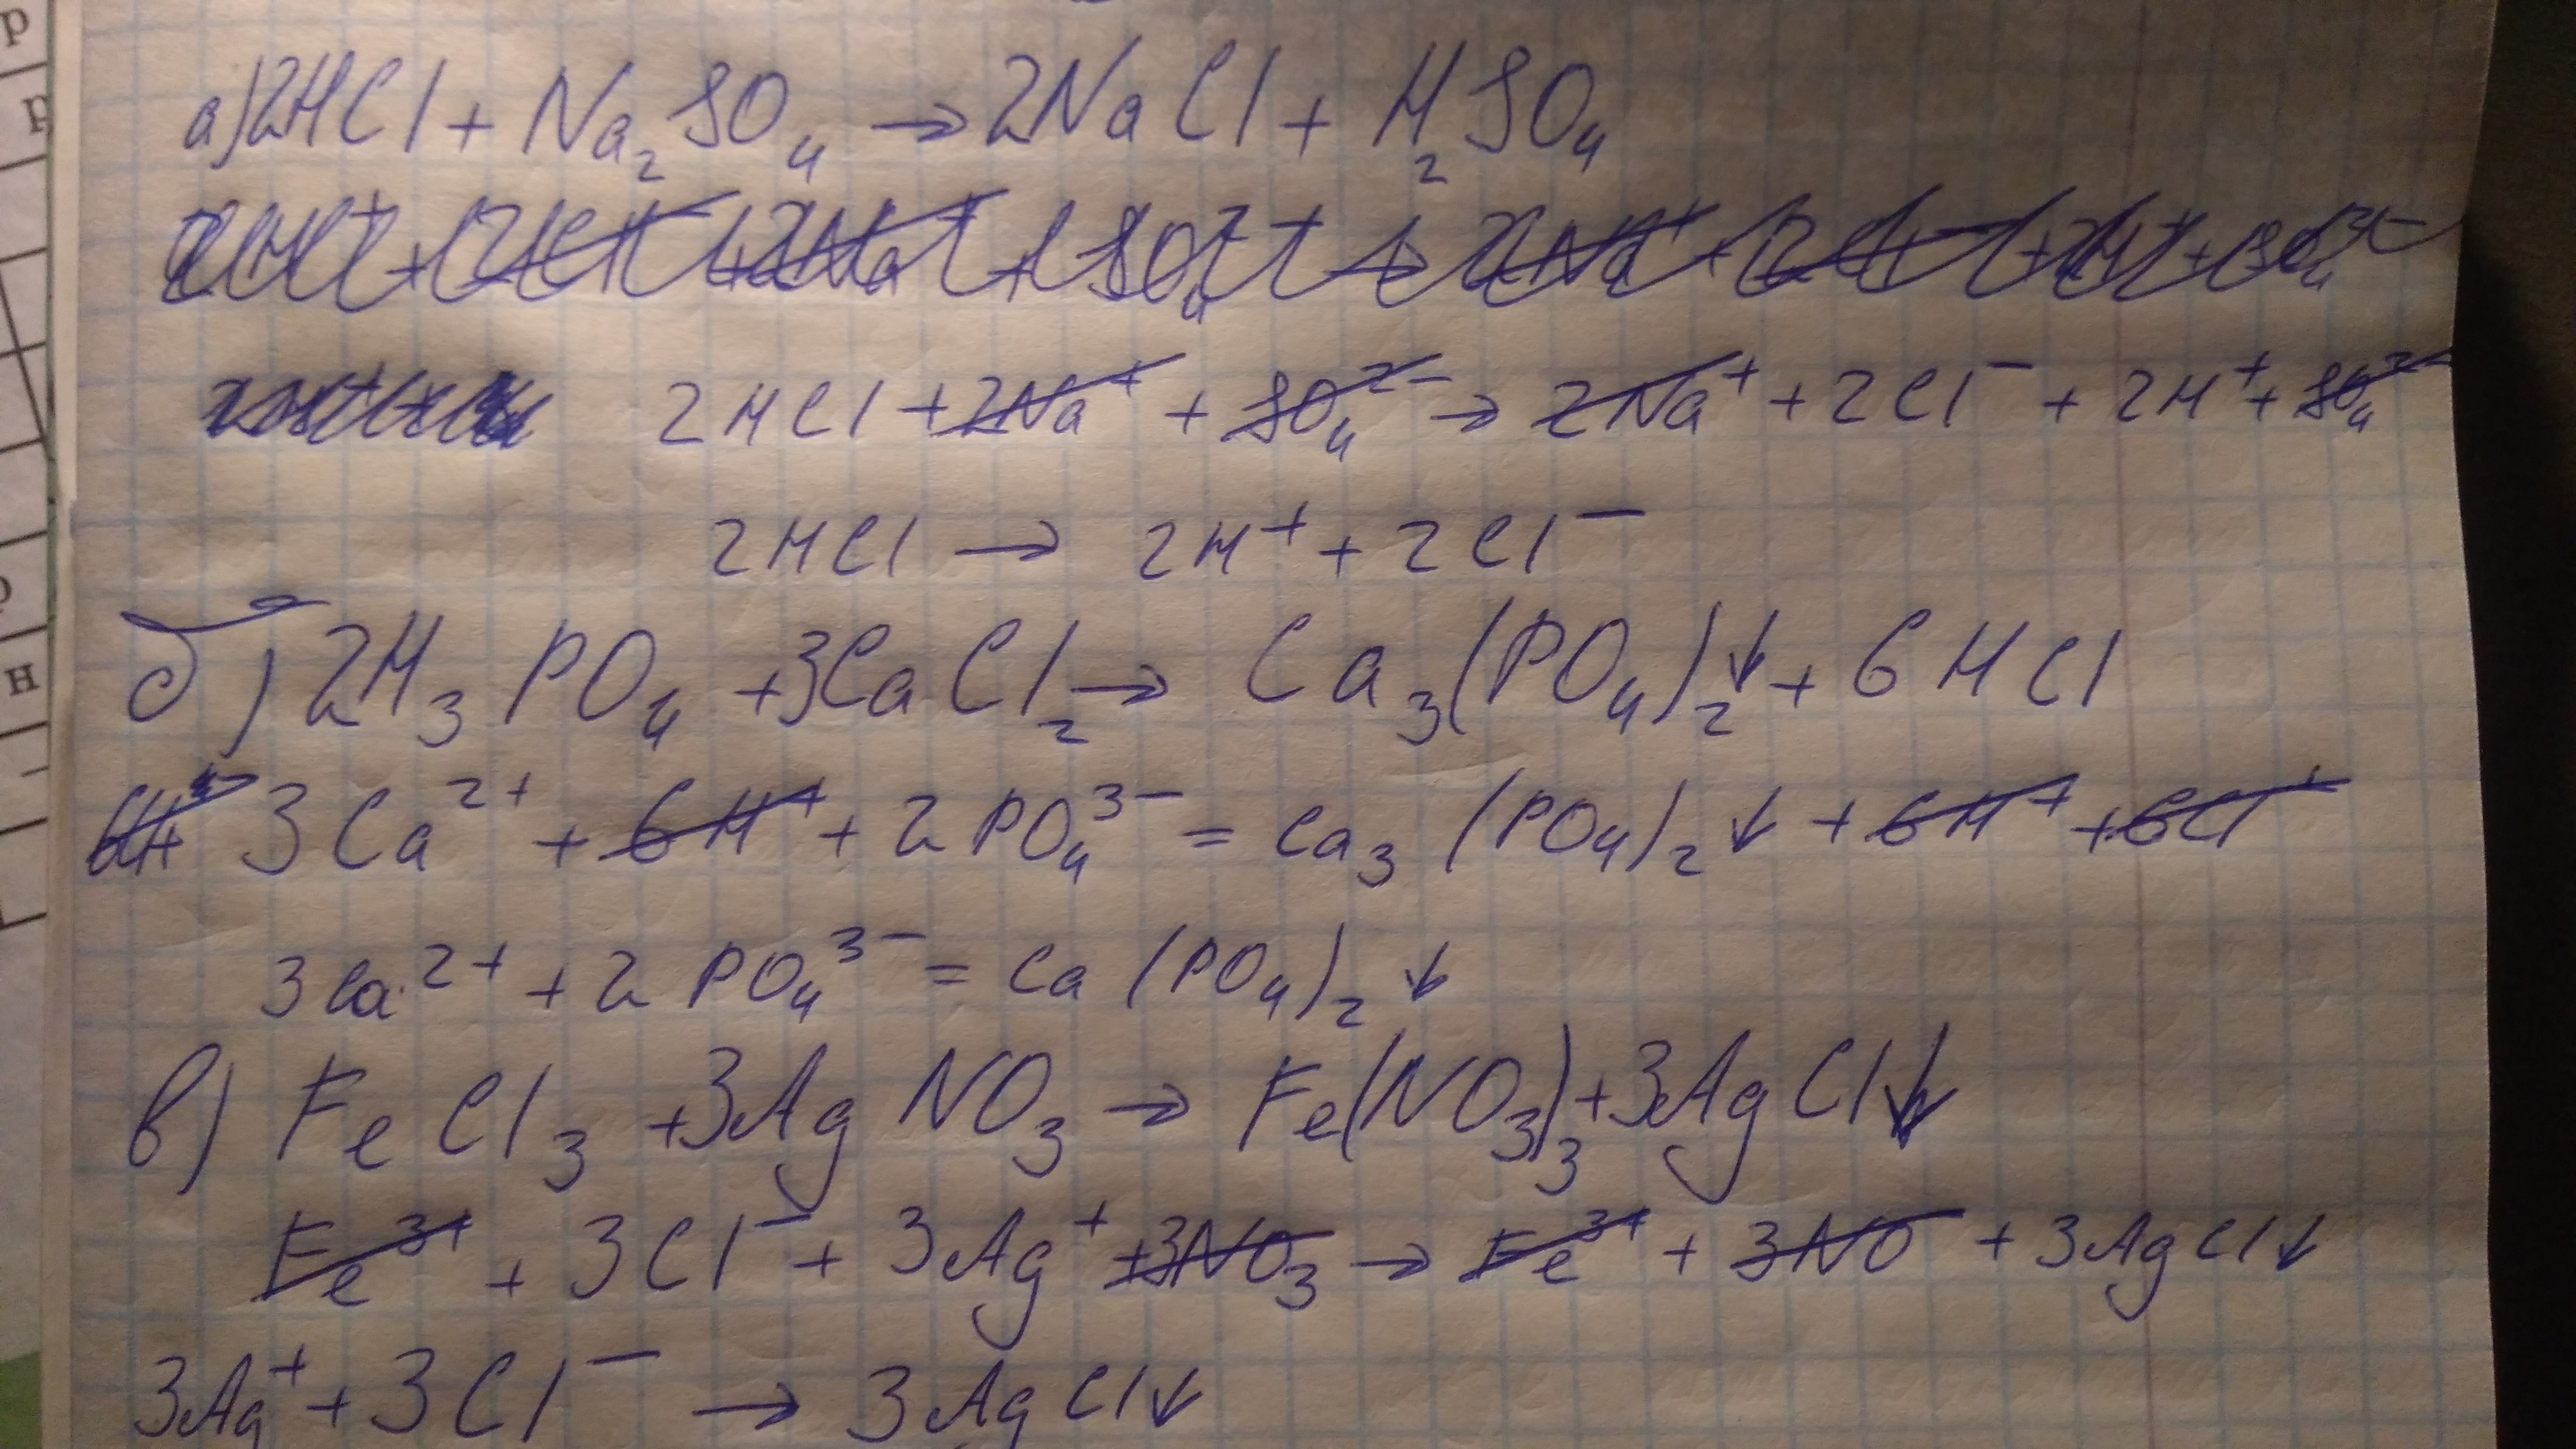 а) 2HCl + Na₂SO₄ → 2NaCl + H₂SO₄
2H⁺ + 2Cl⁻ + 2Na⁺ + SO₄²⁻ → 2Na⁺ + 2Cl⁻ + 2H⁺ + SO₄²⁻
2HCl + 2Na⁺ + SO₄²⁻ → 2Na⁺ + 2Cl⁻ + 2H⁺ + SO₄²⁻
2HCl → 2H⁺ + 2Cl⁻
б) 2H₃PO₄ + 3CaCl₂ → Ca₃(PO₄)₂↓ + 6HCl
3Ca²⁺ + 6H⁺ + 2PO₄³⁻ = Ca₃(PO₄)₂↓ + 6H⁺ + 6Cl⁺
3Ca²⁺ + 2PO₄³⁻ = Ca(PO₄)₂↓
в) FeCl₃ + 3AgNO₃ → Fe(NO₃)₃ + 3AgCl↓
Fe³⁺ + 3Cl⁻ + 3Ag⁺ + 3NO₃ → Fe³⁺ + 3NO + 3AgCl↓
3Ag⁺ + 3Cl⁻ → 3AgCl↓
р
р
н